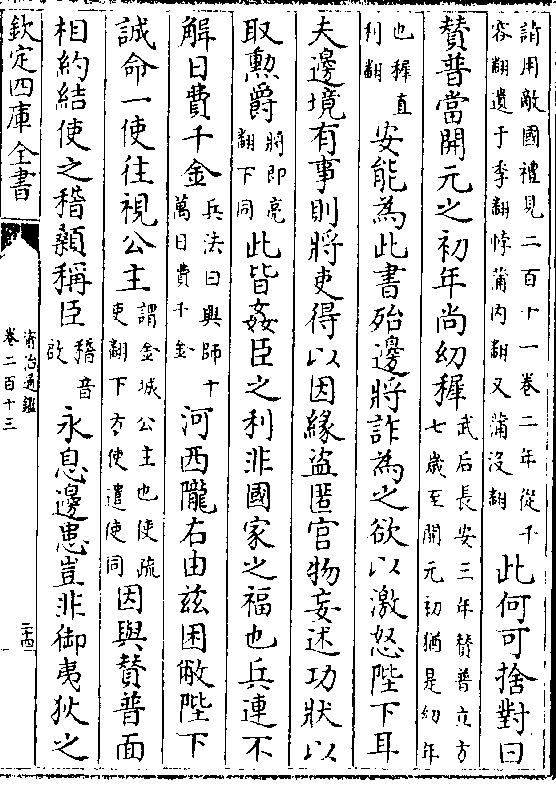 請用敵國禮見二百十一卷二年從千
容翻遺于季翻悖蒲内翻又蒲没翻
此何可捨對曰
贊普當開元之初年尚幼穉
武后長安三年贊普立方
七歲至開元初猶是幼年
也穉直
利翻
安能為此書殆邊將詐為之欲以激怒陛下耳
夫邊境有事則將吏得以因緣盗匿官物妄述功狀以
取勲爵
將即亮
翻下同
此皆姦臣之利非國家之福也兵連不
解日費千金
兵法曰興師十
萬日費千金
河西隴右由兹困敝陛下
誠命一使往視公主
謂金城公主也使疏
吏翻下方使遣使同
因與贊普面
相約結使之稽顙稱臣
稽音
啟
永息邊患豈非御夷狄之
欽定四庫全書
資治通鑑
卷二百十三
二十四